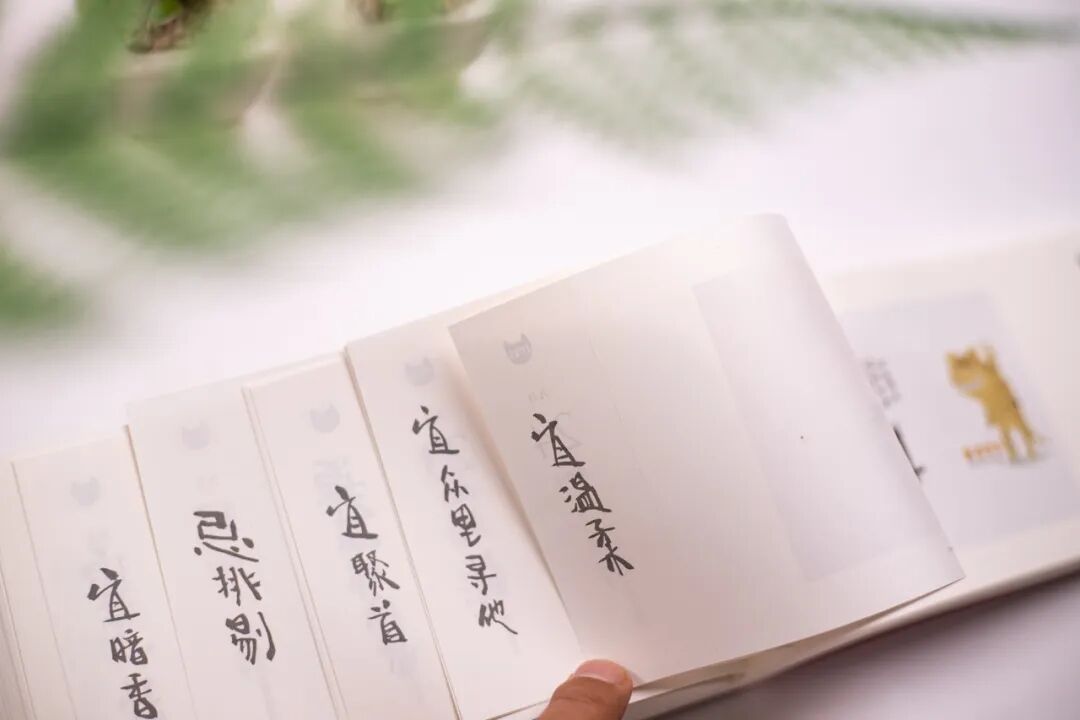 宜暗香
忌挑剔
宜聚首
宜众里寻他
宜温柔